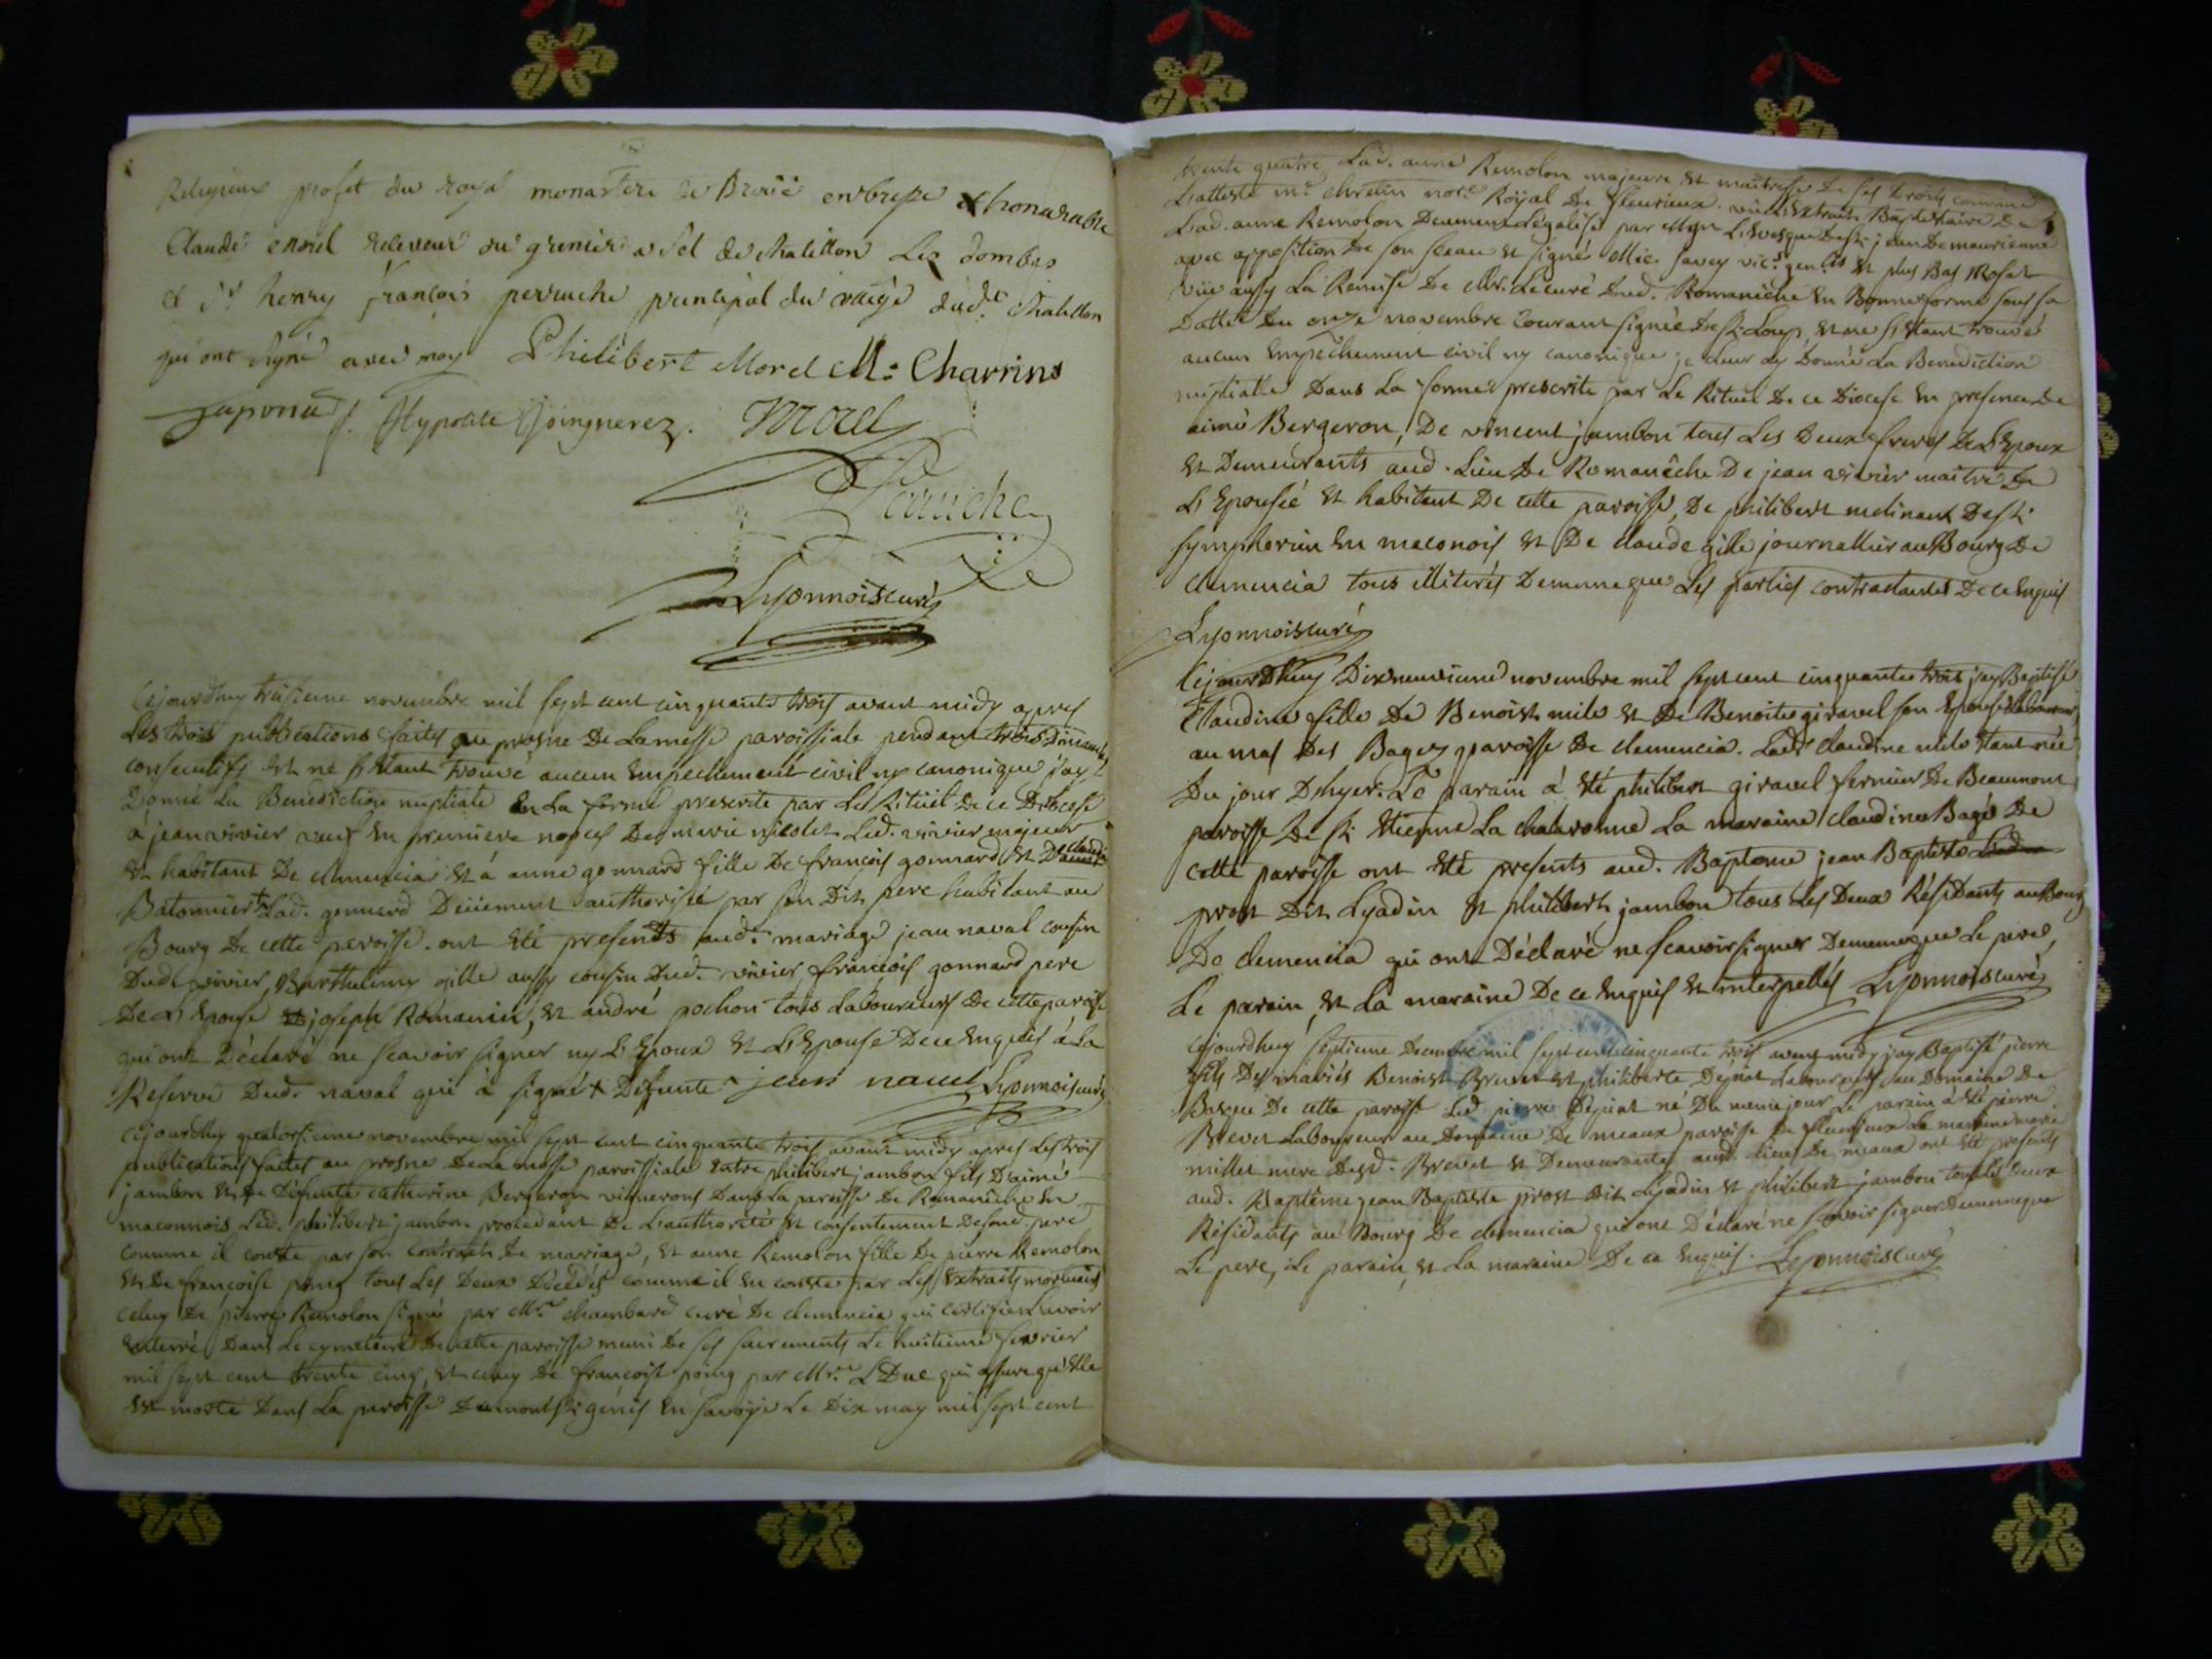 Religieux profet du royal monastere de Brouë en bresse et honnorable
Claude morel receveur du grenier a sel de chatillon les dombes
et Sr henry françois perruche principal du college dudt. Chatillon
qui ont signé avec moy Philibert Morel M: Charrins
f. Hypolite Joingnerez. Morel
Perruche
Lyonnois curé
Cejourdhuy treisieme novembre mil sept cent cinquante trois avant midy apres
Les trois publications faites au prosne De La messe paroissiale pendant trois Dimanches
consecutifs et ne s'etant trouvé aucun Empechement civil ny canonique j'ay
Donné La Benediction nuptiale En La forme prescrite par Le Rituel De ce Diocese
à jean vivier veuf En premiere nopces De marie nicolet Led. vivier majeur
Et habitant De clemencia Et à anne gonnard fille De françois gonnard Et De claudine
Batonnier + Lad. gonnard Deüement authorisée par son Dit pere habitant au
Bourg De cette paroisse. ont Eté presents aud. mariage jean naval cousin
Dud. vivier, Barthelemy gille aussy cousin Dud. vivier, françois gonnard pere
De L'Epouse joseph Romanin, Et andré pochon tous Laboureurs De cette paroisse
qui ont Déclaré ne scavoir signer ny L'Epoux Et L'Epouse De ce Enquis à La
Reserve Dud. naval qui à signé + Deffunte jean naval Lyonnois curé
Cejourdhuy quatorsieme novembre mil sept cent cinquante trois avant midy apres Les trois
publications faites au prosne De La messe paroissiale Entre philibert jambon fils D'aimé
jambon Et De Défunte catherine Bergeron vignerons Dans La paroisse De Romanêche En
maconnois Led. philibert jambon procedant De L'authorité Et consentement De sond. pere
comme il conste par son contract De mariage, Et anne Remolon fille De pierre Remolon
Et De françoise poing tous Les Deux Décédés comme il En conste par Les Extraits mortuaires
celuy De pierre Remolon signé par Mre. chambard curé De clemencia qui certifie L'avoir
Enterré Dans Le cymetiere De cette paroisse muni De ses sacrements Le huitieme fevrier
mil sept cent trente cinq, Et celuy De françoise poing par Mre. L Duc qui assure qu'Elle
Est morte Dans La paroisse De mont St. genis En Savoye Le Dix may mil sept cent
trente quatre Lad. anne Remolon majeure Et maitresse De ses Droits comme
L'atteste Mre chretin nore. Royal De fleurieux. vüe L'Extrait Baptistaire De
Lad. anne Remolon Deuement Légalisé par Mgr L'Evesque De St. jean De maurienne
avec apposition De son sceau Et signé savey vice. genles Et plus Bas Rosat
vüe aussy La Remise De Mr. Le curé Dud. Romanêche En Bonne forme sous sa
Datte Du onze novembre courant signée De St. Loup, Et ne s'Etant trouvé
aucun Empechement civil ny canonique je Leur ay Donné La Benediction
nuptiale Dans La forme prescrite par Le Rituel De ce Diocese En presence De
aimé Bergeron, De vincent jambon tous Les Deux freres De L'Epoux
Et Demeurants aud. Lieu De Romanêche De jean vivier maitre De
L'Epousée Et habitant De cette paroisse, De philibert melinand De St.
symphorien En maconois Et De claude gille journallier au Bourg De
clemencia tous illiterés De meme que Les parties contractantes De ce Enquis
Lyonnois curé
Cejourdhuy Dixneuvieme novembre mil sept cent cinquante trois j'ay Baptisé
Claudine fille De Benoist milo Et De Benoite giravel son Epouse Laboureurs
au mas Des Bagez paroisse De clemencia. Lade claudine milo Etant née
Du jour D'hyer. Le parain à Eté philibert giravel fermier De Beaumont
paroisse De St. Etienne La chalaronne La maraine claudine Bagés De
cette paroisse ont Eté presents aud. Bapteme jean Baptiste
prost Dit Lyadin Et philibert jambon tous Les Deux Résidants au Bourg
De clemencia qui ont Déclaré ne scavoir signer De meme que Le pere,
Le parain, Et La maraine De ce Enquis Et interpellés Lyonnois curé
Cejourdhuy septieme Decembre mil sept cent cinquante trois avant midy j'ay Baptisé pierre
fils Des mariés Benoist Brevet Et philiberte Dépint Laboureurs au Domaine De
De cette paroisse Led. pierre né Du meme jour Le parain à Eté pierre
Brevet Laboureur au Domaine De meaux paroisse De fleurieux La maraine marie
millet mere Dud. Brevet Et Demeurantes aud. Lieu De meaux ont Eté presents
aud. Baptême jean Baptiste prost Dit Lyadin Et philibert jambon tous Les Deux
Résidants au Bourg De clemencia qui ont Déclaré ne scavoir signer De meme que
Le pere, Le parain, Et La maraine De ce Enquis. Lyonnois curé